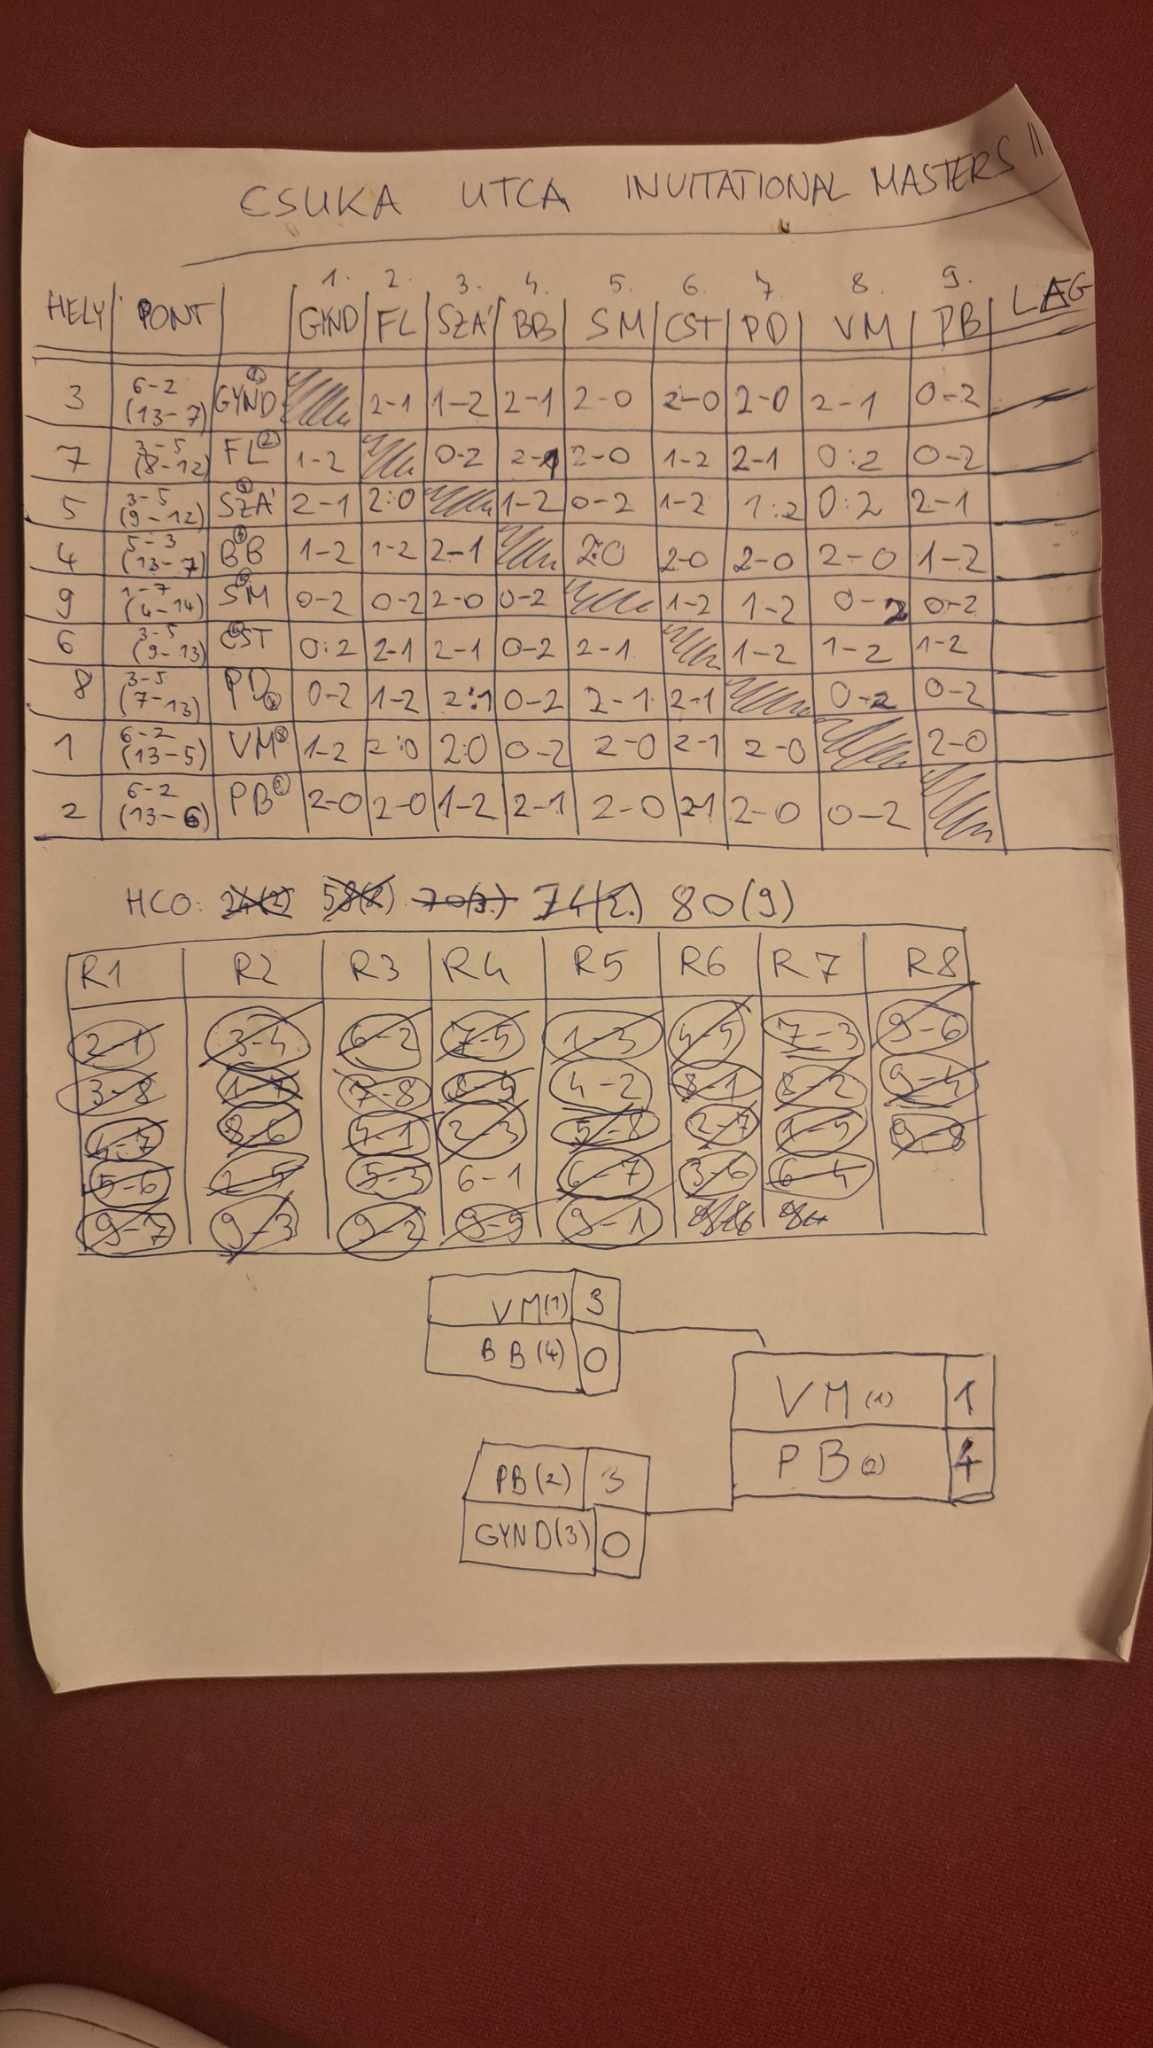 CSUKA UTCA INVITATIONAL MASTERS II
1. 2. 3. 4. 5. 6. 7 8. 9.
HELY PONT GYND FL SZÁ BB SM CST PD VM PB LAG
3 6-2 (13-7) GYND 1 2-1 1-2 2-1 2-0 2-0 2-0 2-1 0-2
7 3-5 (8-12) FL 2 1-2 0-2 2-1 2-0 1-2 2-1 0:2 0-2
5 3-5 (9-12) SZÁ 2-1 2:0 1-2 0-2 1-2 1:2 0:2 2-1
4 5-3 (13-7) BB 1-2 1-2 2-1 2:0 2-0 2-0 2-0 1-2
9 1-7 (4-14) SM 0-2 0-2 2-0 0-2 1-2 1-2 0-2 0-2
6 3-5 (9-13) CST 0:2 2-1 2-1 0-2 2-1 1-2 1-2 1-2
8 3-5 (7-13) PD 0-2 1-2 2:1 0-2 2-1 2-1 0-2 0-2
1 6-2 (13-5) VM 8 1-2 2:0 2:0 0-2 2-0 2-1 2-0 2-0
2 6-2 (13-6) PB 2-0 2-0 1-2 2-1 2-0 2-1 2-0 0-2
HCO: 24(2) 58(8) 70(3.) 74(2.) 80(9)
R1 R2 R3 R4 R5 R6 R7 R8
2-1 3-4 6-2 7-5 1-3 4-5 7-3 9-6
3-8 1-7 7-8 8-4 4-2 8-1 8-2 9-4
4-7 8-6 4-1 2-3 5-8 2-7 1-5 9-8
5-6 2-5 5-3 6-1 6-7 3-6 6-4
9-7 9-3 9-2 9-5 9-1
VM(1) 3
BB(4) 0
VM(1) 1
PB(2) 4
PB(2) 3
GYND(3) 0